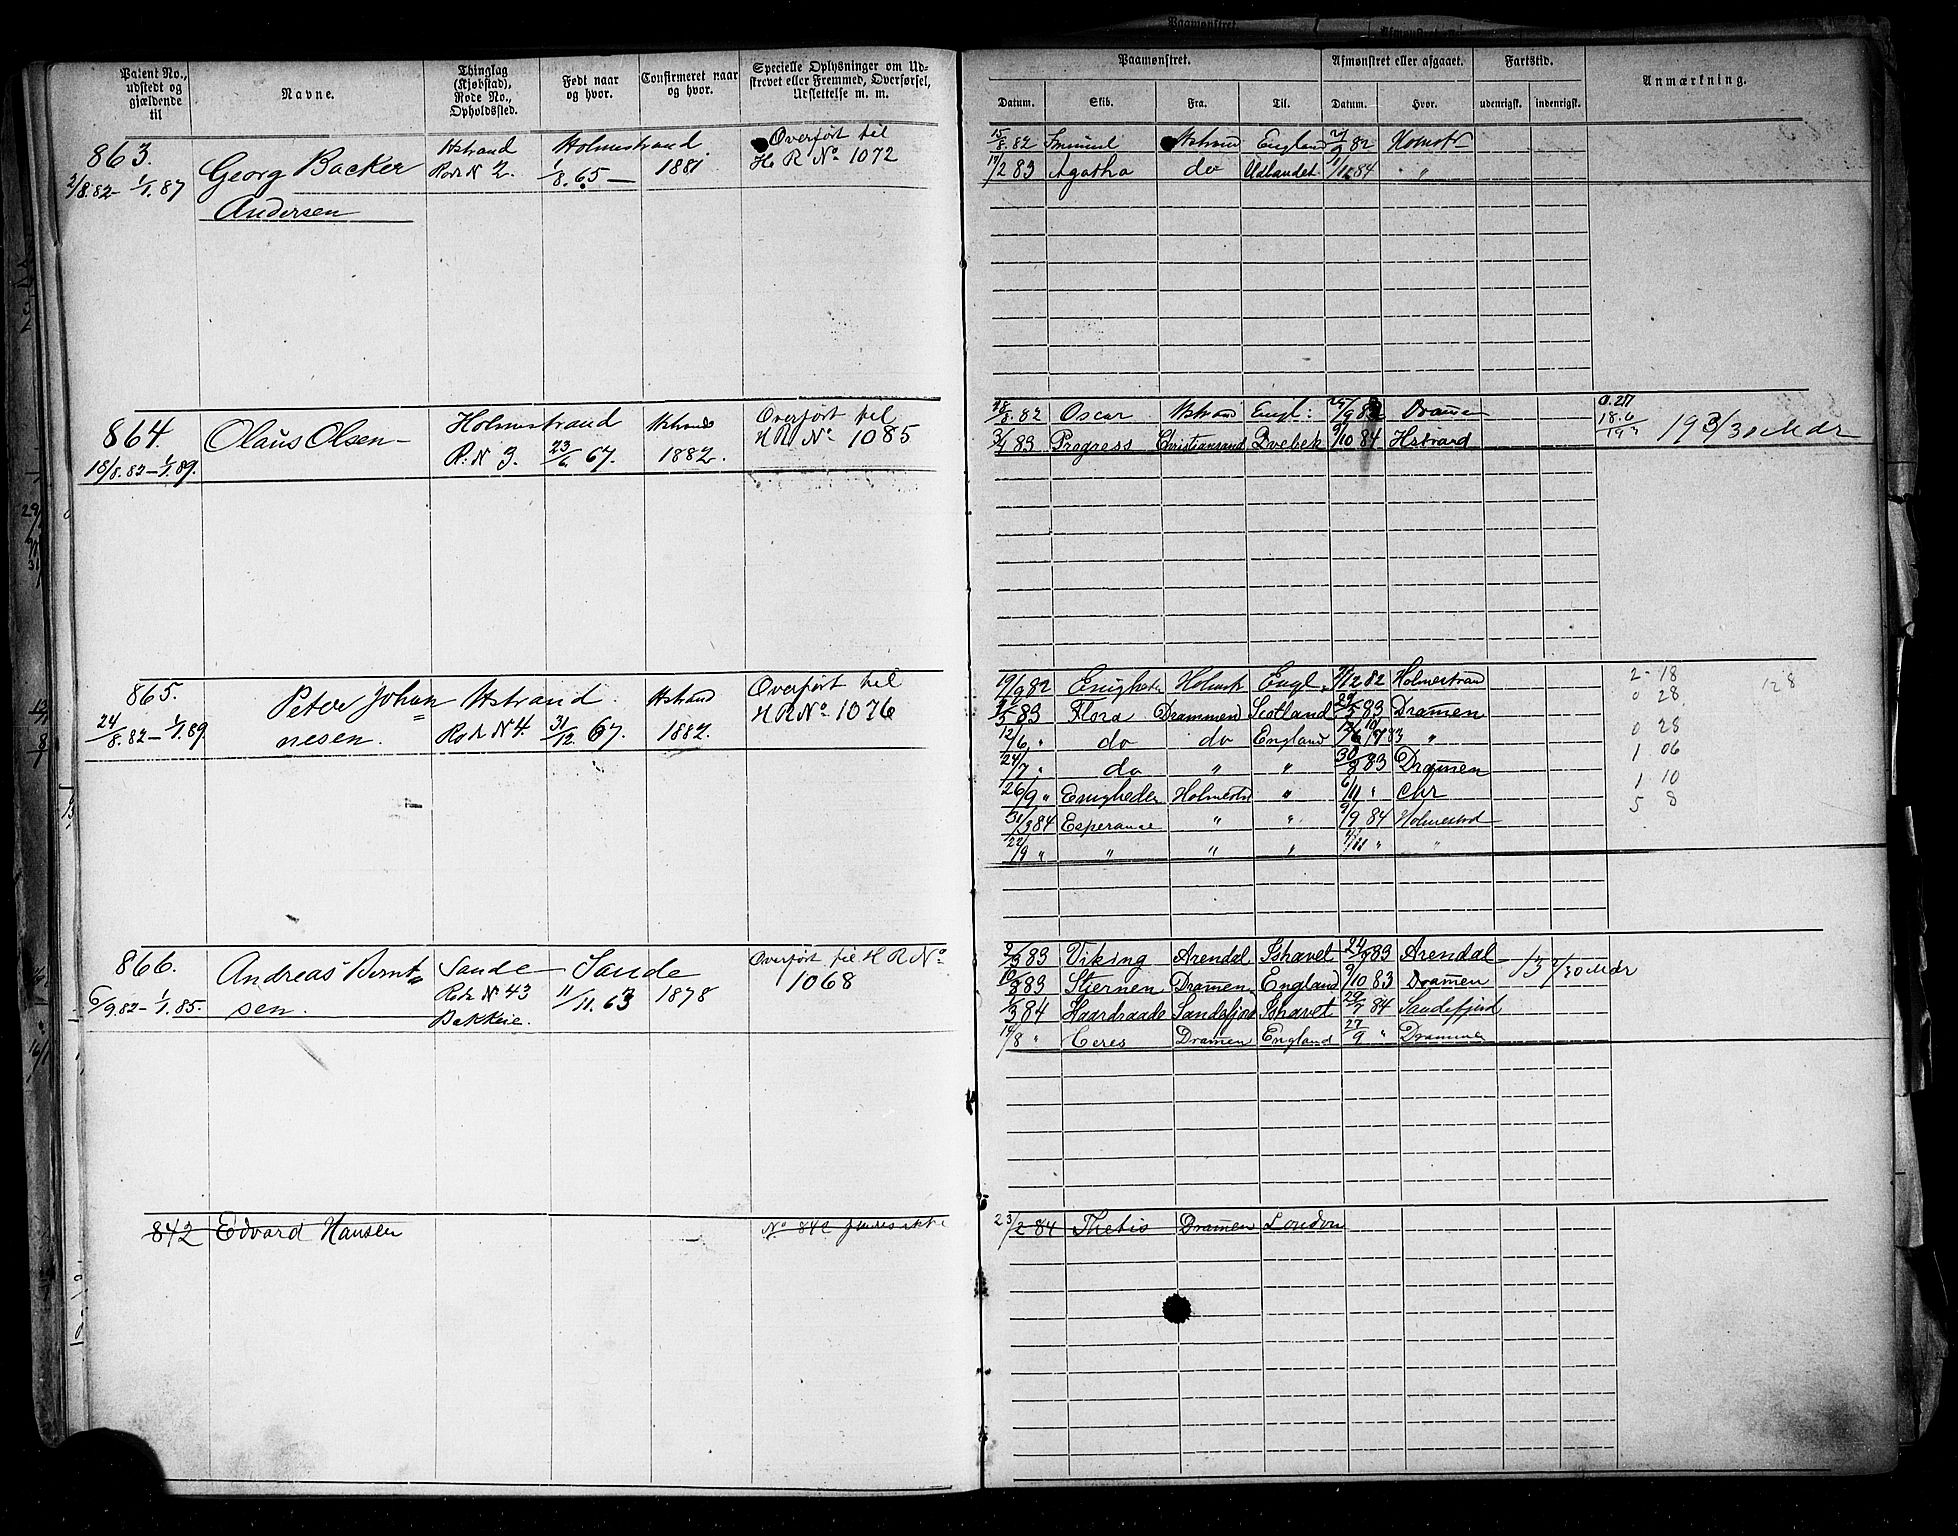 Patent No., udstedt og gjældende til
Navne.
Thinglag (Kjøbstad), Rode No., Opholdssted.
Født naar og hvor.
Confirmeret naar og hvor.
Specielle Oplysninger om Udskrevet eller Fremmed, Overførsel, Udslettelse m. m.
Paamønstret.
Datum. Skib. Fra. Til.
Afmønstret eller afgaaet.
Datum. Hvor.
Fartstid.
udenrigsk. indenrigsk.
Anmærkning.
863. Georg Backer Andersen
2/8.82 – 1/1.87
Hstrand Rode N 2.
Holmestrand 1/8.65 – 1881
Overført til H R No 1072
15/8.82 Hstrand England 82 Holmst
17/2 83 Agatha do Udlandet 11/10 84 "
864. Olaus Olsen
18/8.82 – 1/1.89.
Holmestrand R. N 3. 23/6 67.
Hstrand 1882.
Overført til H R No 1085
28/8.82 Oscar Hstrand Engl: Dramen
83 Progress Christiansand 9/10 84 Hstrand
0.27
18.6
19 3
19 3/30 Mdr
865. Peter Johannesen.
24/8.82 – 1/1.89
Hstrand Rode N 4. 31/12. 67.
Hstrand 1882.
Overført til H R No 1076
19/9 82 Enighede Holmst Engl. 82 Holmestrand 2 - 18
83 Flora Drammen Scotland 83 Dramen 0 28
128
12/6 " do do England 83 " 0 28
24/7 " do " " 30/8 83 Dramen 1 06
26/9 " Enigheden Holmestd " 6/11 " Chr 1 10
31/3 84 Esperance " " 9/9 84 Holmestrd 5 8
22/9 " " " " 11 " "
866. Andreas Berntsen.
6/9.82 – 1/1.85.
Sande Rode N 43 Bakkeie.
Sande 11/11.63 1878
Overført til H R No 1068
83 Viking Arendal Ishavet 24/8 83 Arendal
83 Stiernen Dramen England 9/10 83 Dramen
13 /30 Mdr
84 Haardraade Sandefjord Ishavet 29/7 84 Sandefjord
14/8 " Ceres Dramen England 27/9 " Dramme
842 Edvard Hansen
No 842 findes ikke
23/2 84 Thetis Dramen London